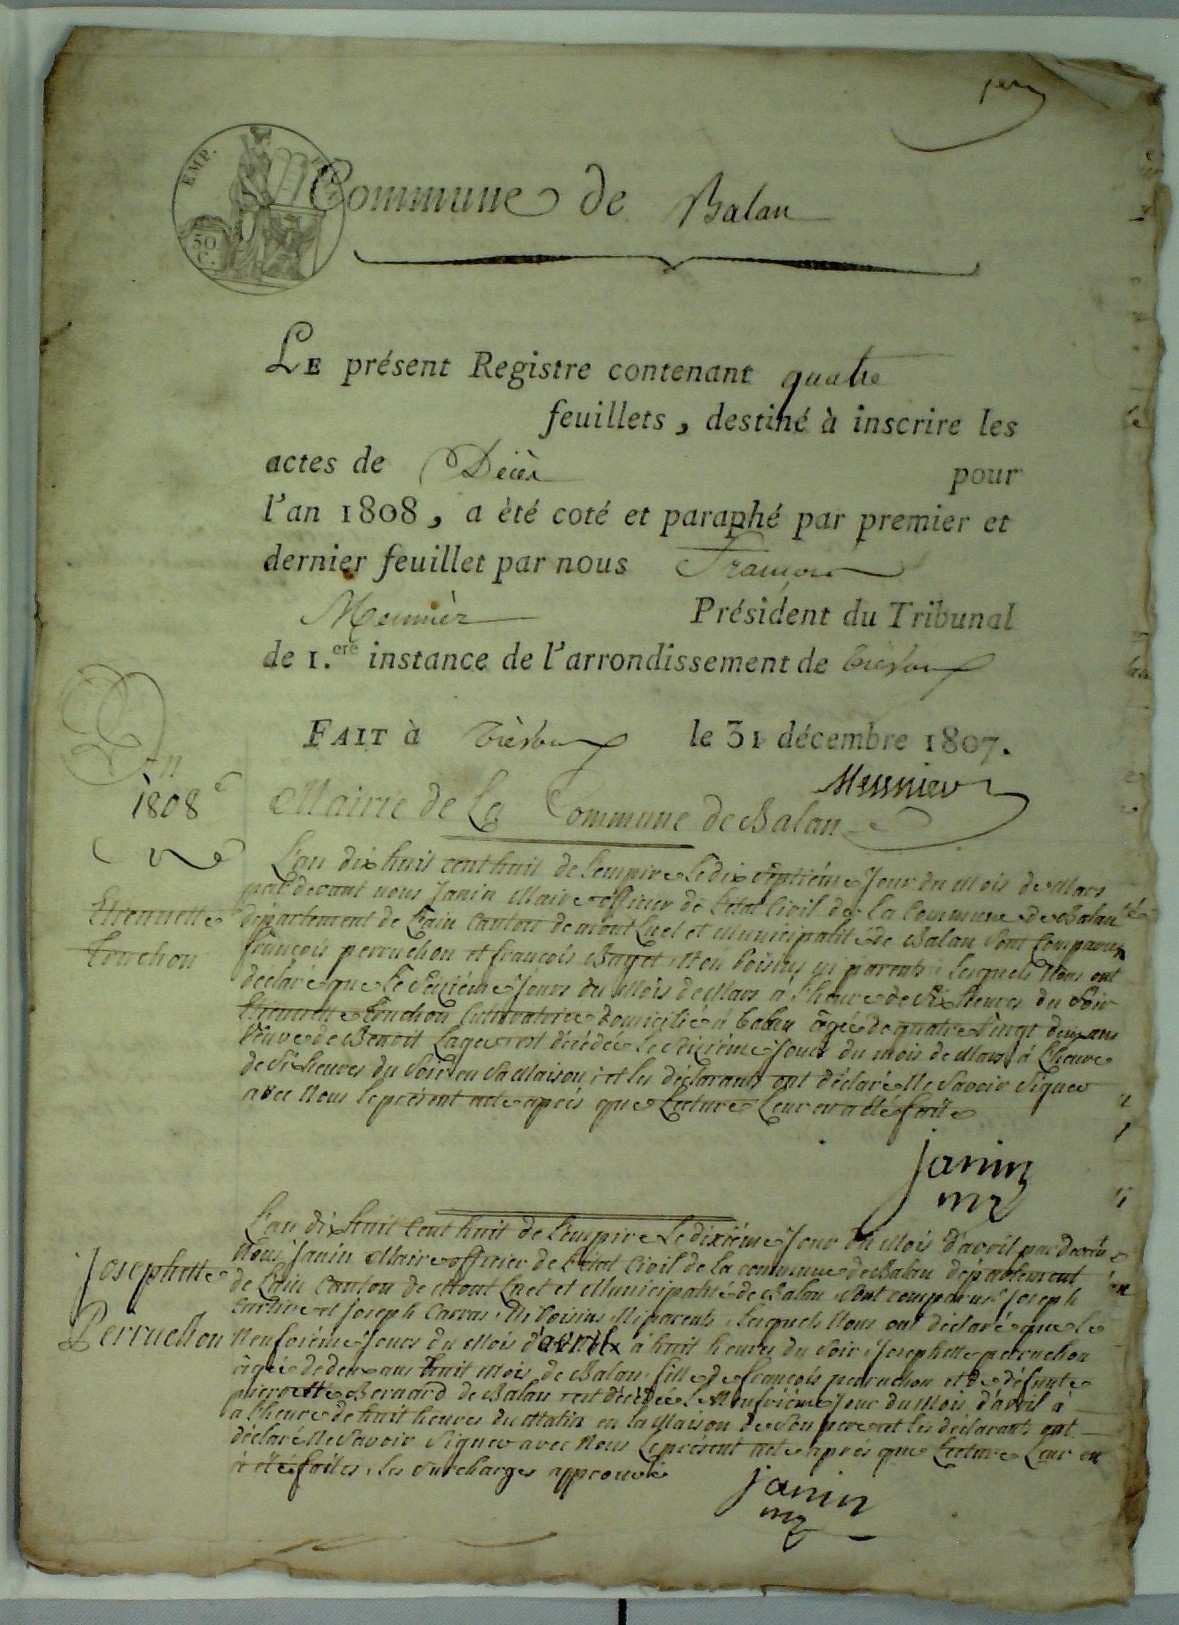 1er
EMP.
50
C.
Commune de Balan
LE présent Registre contenant quatre
feuillets, destiné à inscrire les
actes de Décès pour
l'an 1808, a èté coté et paraphé par premier et
dernier feuillet par nous François
Meunièr Président du Tribunal
de 1.ere instance de l'arrondissement de Trévoux
FAIT à Trévoux le 31 décembre 1807.
Meunier
An
1808
Mairie de La Commune de Balan
L'an dix huit cent huit de L'empire Le dix septième Jour du Mois de Mars
par devant nous Janin Maire officier de L'état Civil de La Commune de Balan
département de L'ain Canton de mont Luel et Municipalité de Balan sont Comparus
françois perruchon et françois Baget voisins ni parents, Lesquels Nous ont
déclaré que Le Seizième Jour du Mois de Mars à L'heure de Six heures du Soir
Etiennette Touchon Cultivatrice domicilié à balan âgée de quatre vingt deux ans
veuve de Benoit Lager est décédée Le Seizième Jour du mois de Mars à L'heure
de Six heures du Soir en Sa Maison, et les déclarants ont déclaré Ne Savoir Signer
avec Nous Le présent acte après que Lecture Leur en a été faite
Etiennette
Touchon
janin
mr
L'an dix huit Cent huit de L'empire Le dixième Jour du Mois d'avril par devant
Nous Janin Maire officier de L'état Civil de la commune de Balan département
de L'ain Canton de Mont Luel et Municipalité de Balan, sont comparus Joseph
et Joseph Carras, Ni voisins Ni parents, Lesquels Nous ont déclaré que Le
Neufvième Jour du Mois d'avril à huit heures du Soir, Josephette perruchon
âgée de deux ans huit Mois de Balan fille de François perruchon et de défunte
pierrette Bernard de Balan est décédée Le Neufvième Jour du Mois d'avril à
à L'heure de huit heures du Matin en la Maison de Son pere et les déclarants ont
déclaré Ne Savoir Signer avec Nous Le présent acte après que Lecture Leur en
a été faites, les Surcharges approuvé
Josephette
Perruchon
janin
mr